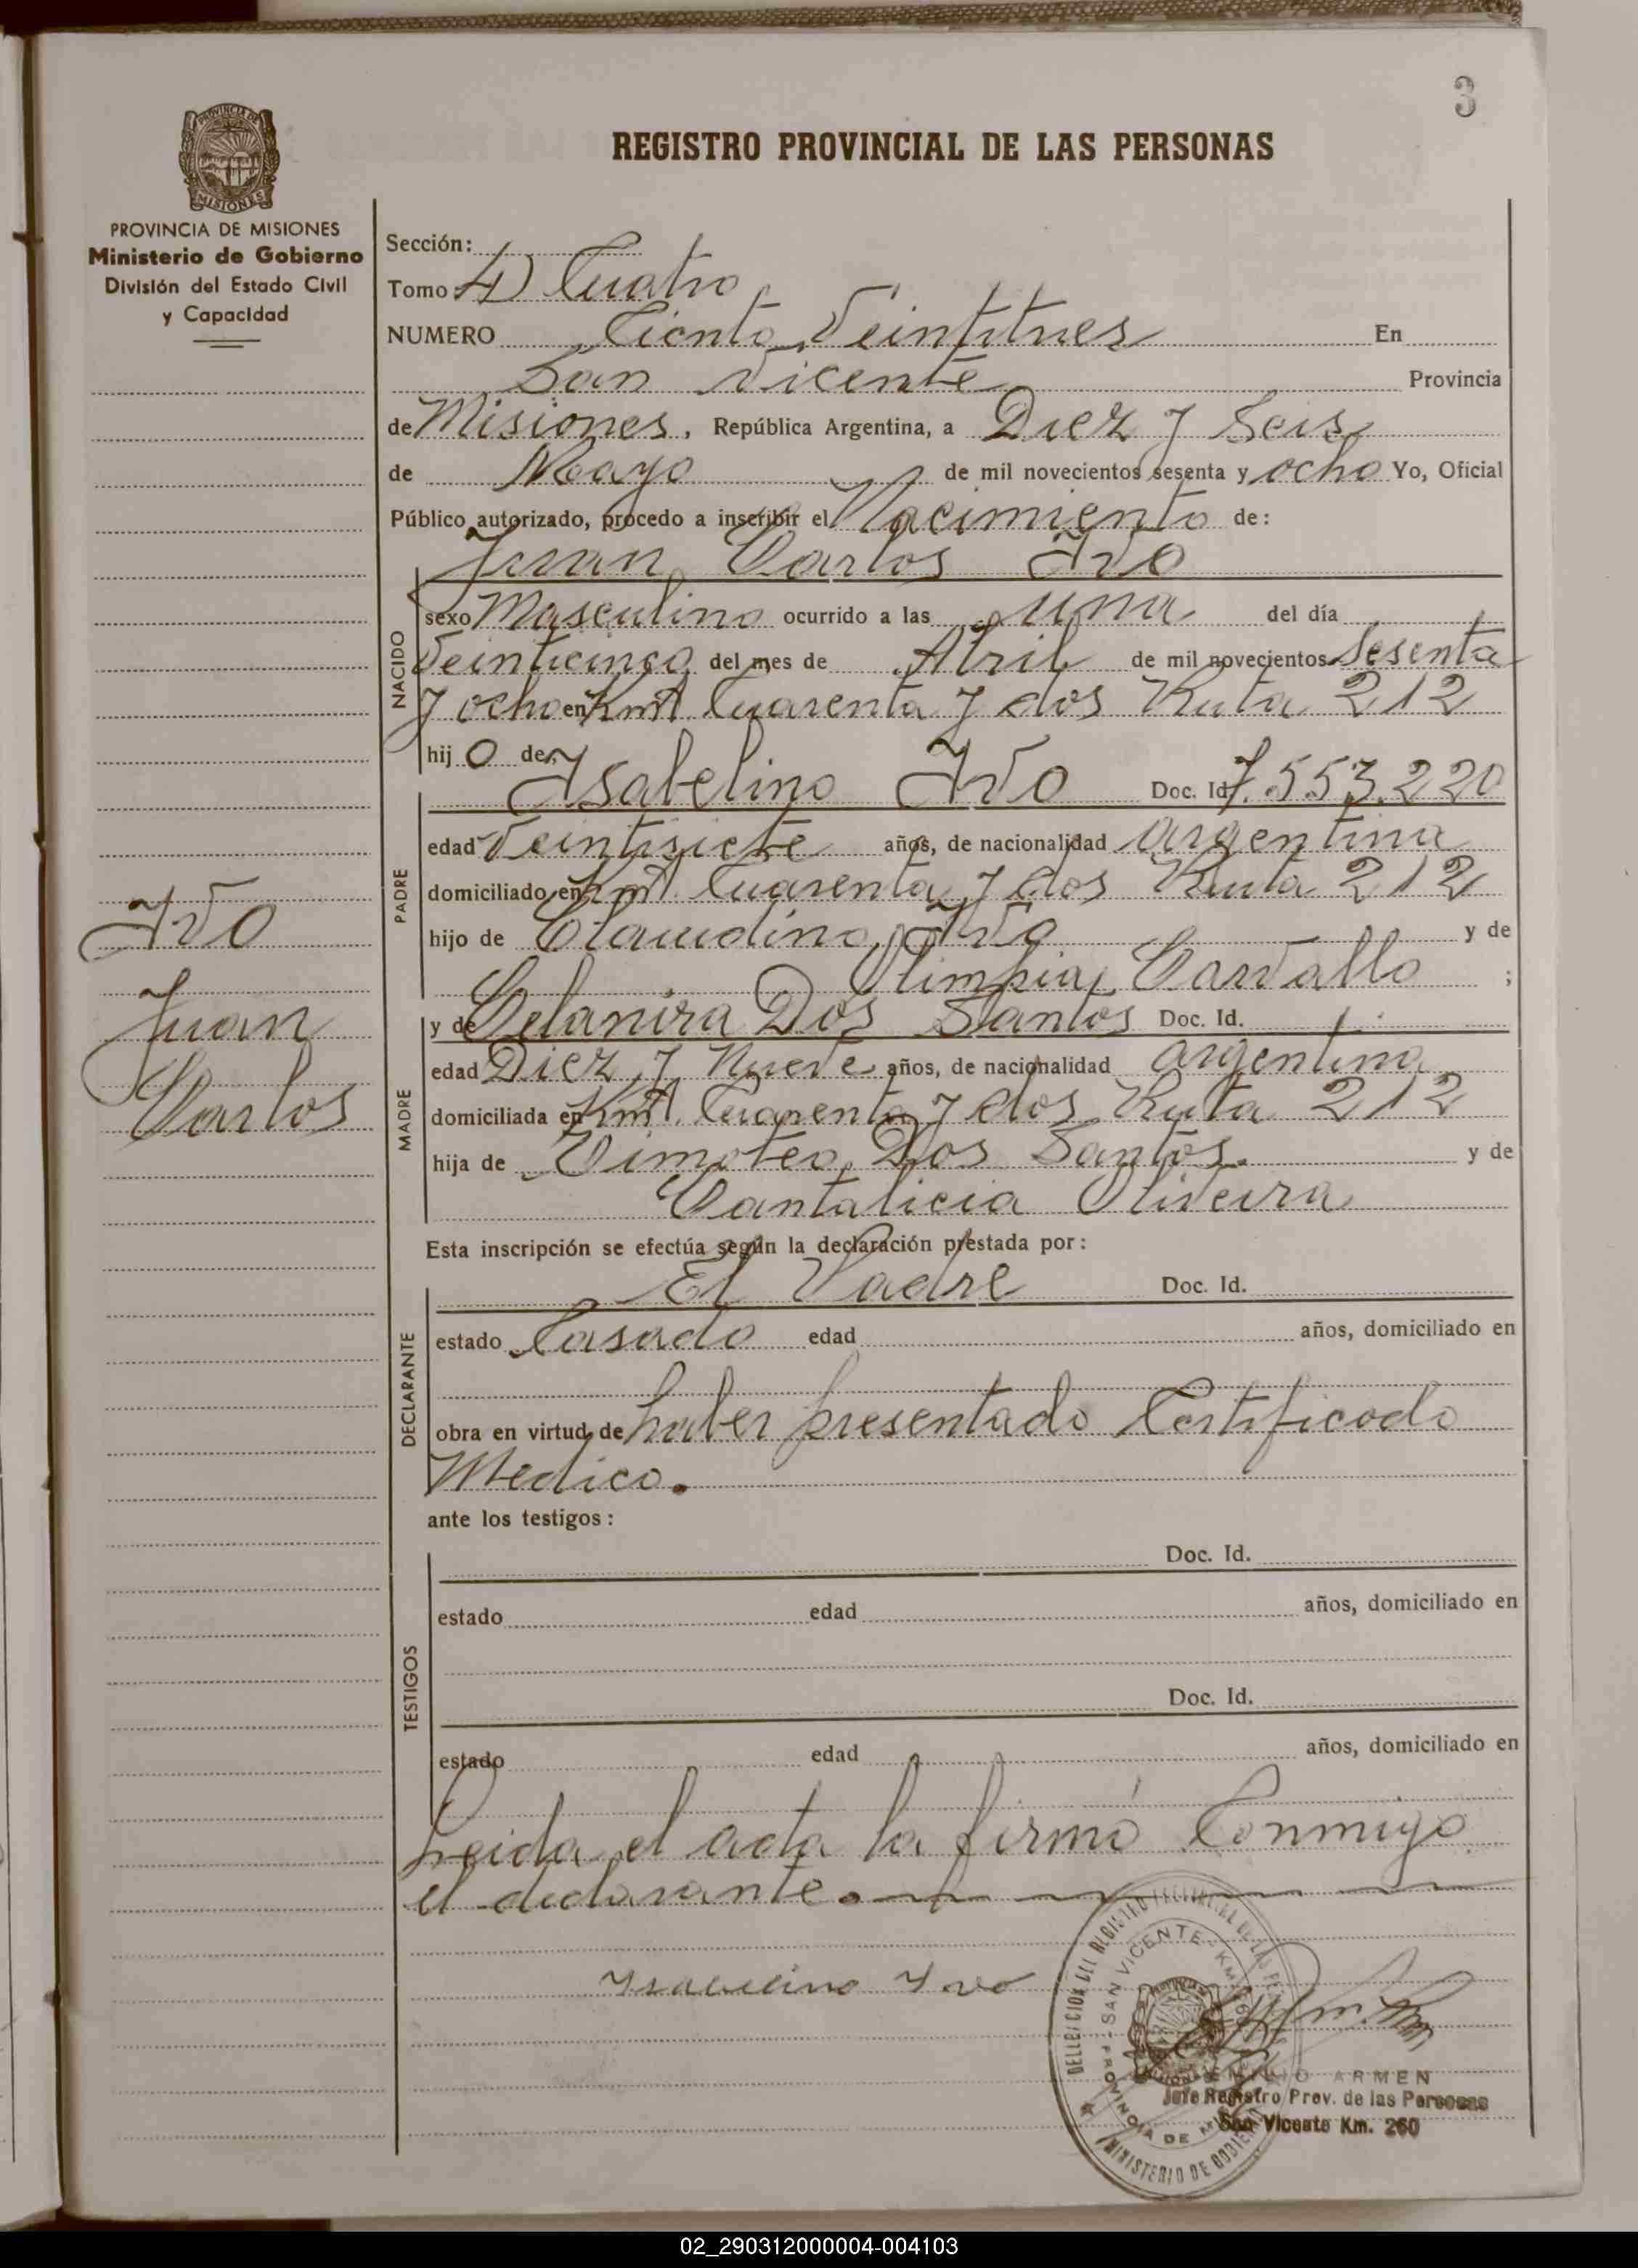 3
REGISTRO PROVINCIAL DE LAS PERSONAS
PROVINCIA DE MISIONES
Ministerio de Gobierno
División del Estado Civil
y Capacidad
Sección:
Tomo 4) Cuatro
NUMERO Ciento Veintitres En
San Vicente Provincia
de Misiones, República Argentina, a Diez y Seis
de Mayo de mil novecientos sesenta y ocho Yo, Oficial
Público autorizado, procedo a inscribir el Nacimiento de:
Juan Carlos Ivo
NACIDO
sexo Masculino ocurrido a las una del día
Veinticinco del mes de Abril de mil novecientos Sesenta
y ocho en Km Cuarenta y dos Ruta 212
hij o de
Isabelino Ivo Doc. Id 7.553.220
PADRE
edad Veintisiete años, de nacionalidad argentina
domiciliado en Km. Cuarenta y dos Ruta 212
hijo de Claudino Ivo y de
Olimpia Carvallo ;
y de Delanira Dos Santos Doc. Id.
MADRE
edad Diez y Nueve años, de nacionalidad argentina
domiciliada en Km. Cuarenta y dos Ruta 212
hija de Timoteo Dos Santos. y de
Cantalicia Oliveira
Ivo
Juan
Carlos
Esta inscripción se efectúa según la declaración prestada por:
El Padre Doc. Id.
DECLARANTE
estado Casado edad años, domiciliado en
obra en virtud de haber presentado Certificado
Medico.
ante los testigos:
Doc. Id.
TESTIGOS
estado edad años, domiciliado en
Doc. Id.
estado edad años, domiciliado en
Leida el acta la firmó Conmigo
el declarante.
Isabelino Ivo
SAN VICENTE - KM
PROVINCIA DE
MINISTERIO DE GOBIERNO
ARMEN
Jefe Registro Prov. de las Personas
San Vicente Km. 260
02_290312000004-004103